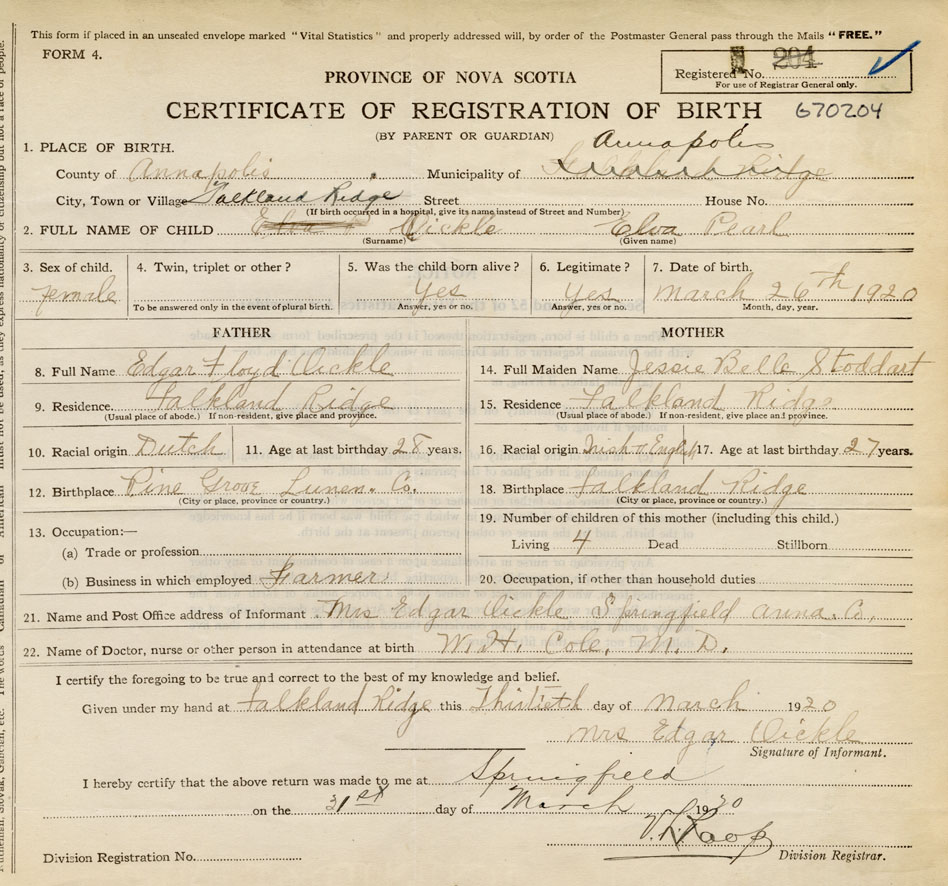 This form if placed in an unsealed envelope marked "Vital Statistics" and properly addressed will, by order of the Postmaster General pass through the Mails "FREE."
FORM 4.
PROVINCE OF NOVA SCOTIA
Registered No. 204
For use of Registrar General only.
CERTIFICATE OF REGISTRATION OF BIRTH 670204
(BY PARENT OR GUARDIAN)
1. PLACE OF BIRTH. Annapolis
County of Annapolis Municipality of Falkland Ridge
City, Town or Village Falkland Ridge Street House No.
(If birth occurred in a hospital, give its name instead of Street and Number)
2. FULL NAME OF CHILD Elva Oickle Elva Pearl
(Surname) (Given name)
3. Sex of child. 4. Twin, triplet or other? 5. Was the child born alive? 6. Legitimate? 7. Date of birth.
female Yes Yes March 26th 1920
To be answered only in the event of plural birth. Answer, yes or no. Answer, yes or no. Month, day, year.
FATHER MOTHER
8. Full Name Edgar Floyd Oickle 14. Full Maiden Name Jessie Belle Stoddart
9. Residence Falkland Ridge 15. Residence Falkland Ridge
(Usual place of abode.) If non-resident, give place and province. (Usual place of abode.) If non-resident, give place and province.
10. Racial origin Dutch 11. Age at last birthday 28 years. 16. Racial origin Irish & English 17. Age at last birthday 27 years.
12. Birthplace Pine Grove Lunen. Co. 18. Birthplace Falkland Ridge
(City or place, province or country.) (City or place, province or country.)
13. Occupation:— 19. Number of children of this mother (including this child.)
(a) Trade or profession Living 4 Dead Stillborn
(b) Business in which employed Farmer 20. Occupation, if other than household duties
21. Name and Post Office address of Informant Mrs Edgar Oickle Springfield Anna. Co.
22. Name of Doctor, nurse or other person in attendance at birth W. H. Cole, M. D.
I certify the foregoing to be true and correct to the best of my knowledge and belief.
Given under my hand at Falkland Ridge this Thirtieth day of March 1920
Mrs Edgar Oickle
Signature of Informant.
I hereby certify that the above return was made to me at Springfield
on the 31st day of March 1920
Division Registration No. Division Registrar.